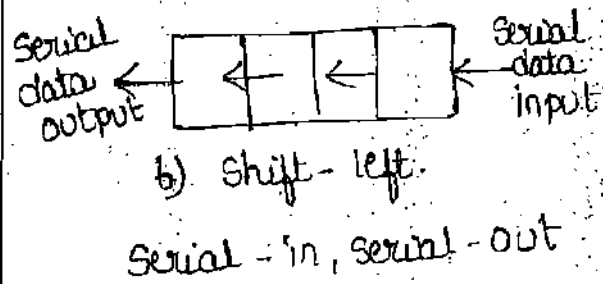 Serial
data
output
Serial
data
input
b) Shift - left.
Serial - in, serial - out